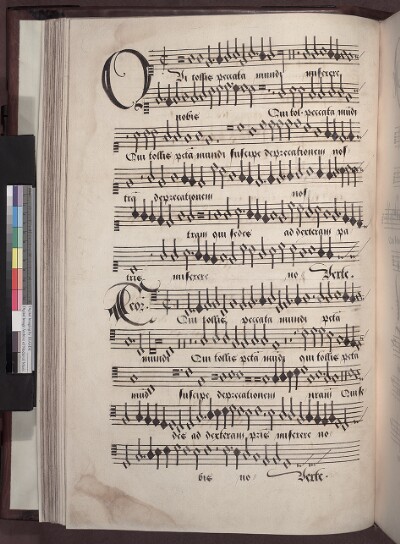 Qui tollis peccata mundi miserere
nobis Qui tol peccata mūdi
Qui tollis pctā mundi suscipe deprecationem nos
trā deprecationem nos
tram qui sedes ad dexteram pa
tris miserere no Verte.
Qui tollis peccata mundi pctā
mundi Qui tollis pctā mūdi qui tollis pctā
mūdi suscipe deprecationem nram Qui se
des ad dexteram pris miserere no
bis no Verte.